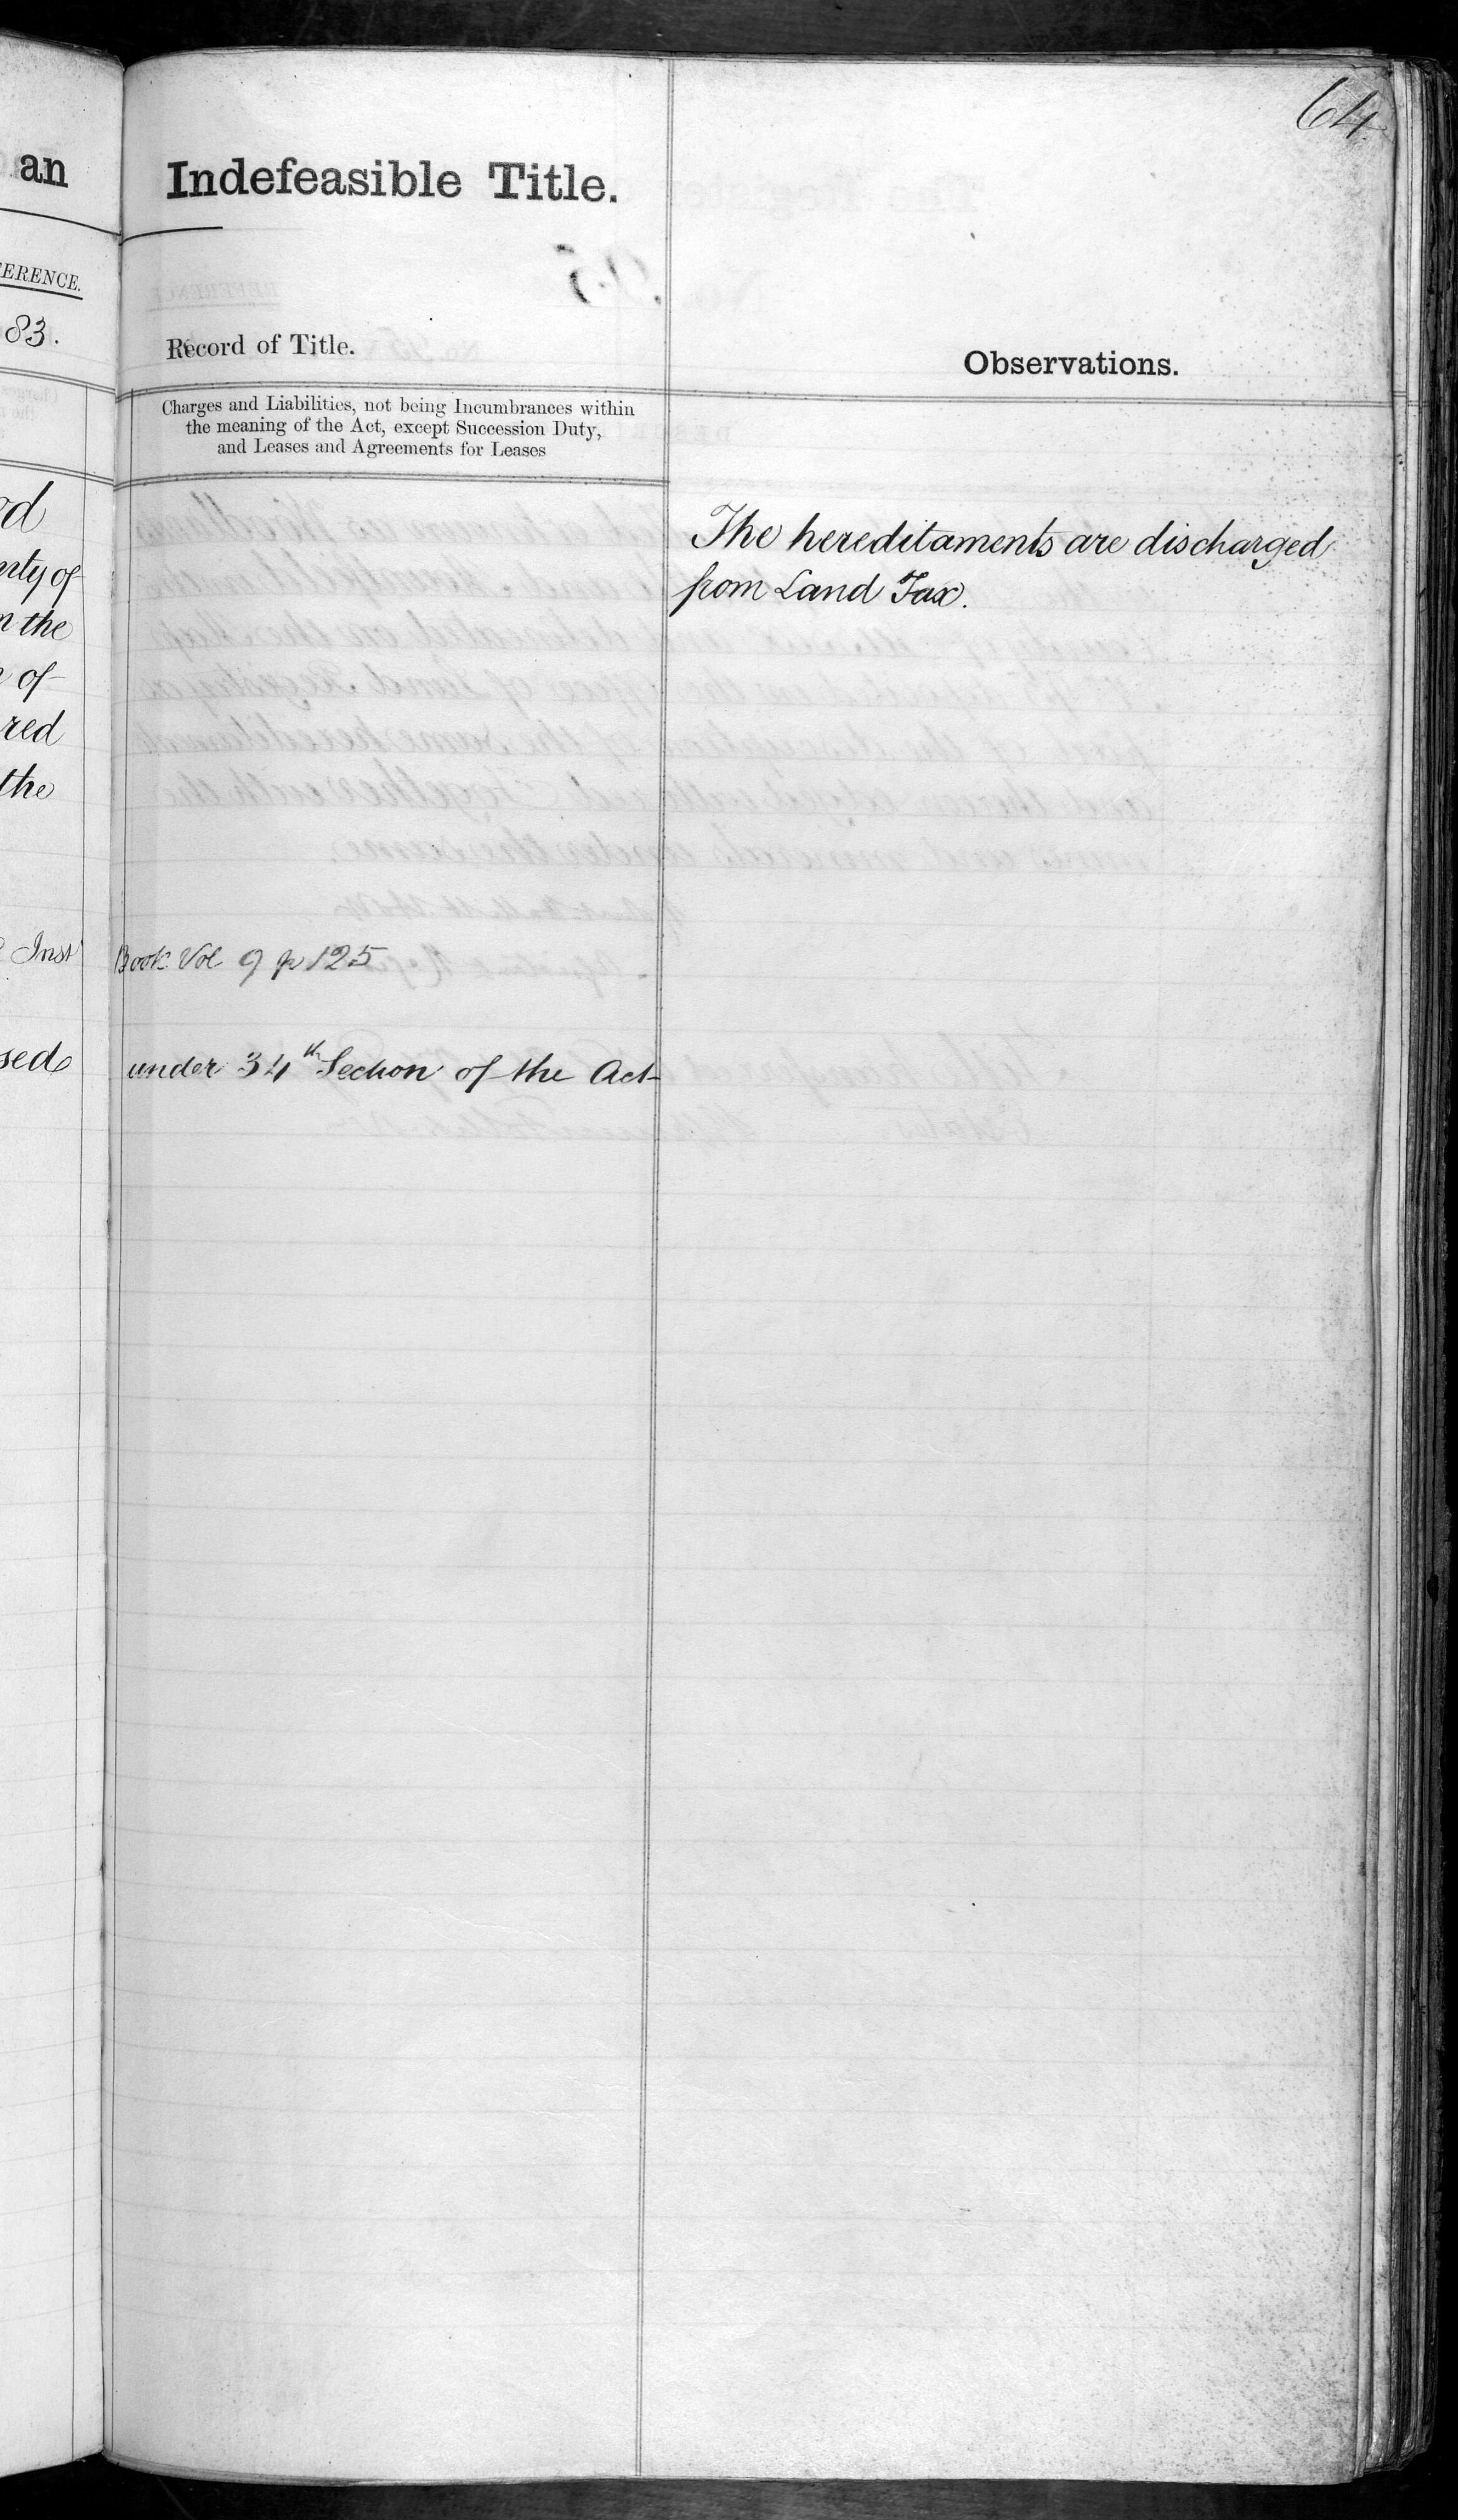 64
an
Indefeasible Title.
ERENCE.
83.
Record of Title.
Observations.
Charges and Liabilities, not being Incumbrances within
the meaning of the Act, except Succession Duty,
and Leases and Agreements for Leases
The hereditaments are discharged
from Land Tax.
nty of
n the
of
red
the
Inst Book Vol 9 p 125
sed under 34th Section of the Act